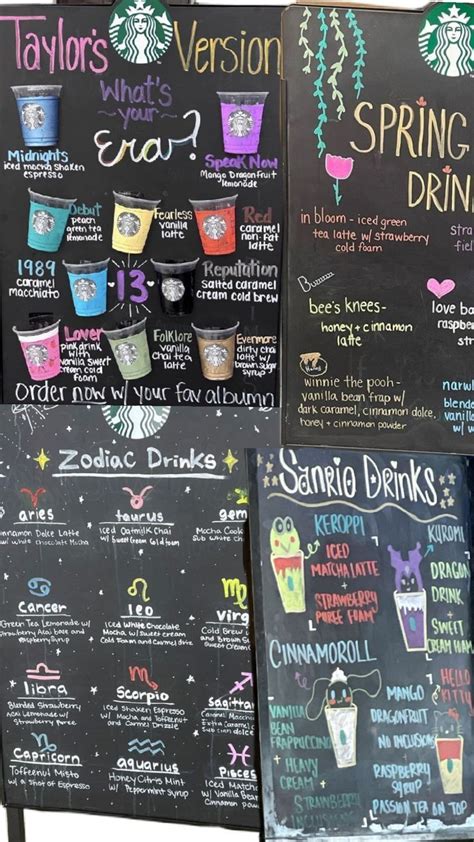 Taylor's Version
What's
~your~
Era?
Midnights
iced mocha shaken
espresso
Speak Now
Mango Dragonfruit
lemonade
Debut
peach
green tea
lemonade
Fearless
vanilla
latte
Red
caramel
non-fat
latte
1989
caramel
macchiato
13
Reputation
Salted caramel
cream cold brew
Lover
pink drink
with
vanilla sweet
cream cold
foam
Folklore
vanilla
chai tea
latte
Evermore
dirty chai
latte w/
brown sugar
syrup
Order now w/ your fav albumn
SPRING
DRIN
in bloom - iced green
tea latte w/ strawberry
cold foam
stra
fiel
bee's knees-
honey + cinnamon
latte
love ba
raspbe
str
winnie the pooh-
vanilla bean frap w/
dark caramel, cinnamon dolce,
honey + cinnamon powder
narw
blende
vanilla
w/
Zodiac Drinks
aries
innamon Dolce Latte
w/ white chocolate Mocha
taurus
iced Oatmilk Chai
w/ Sweet Cream Cold foam
gem
Mocha Cook
Sub white ch
Cancer
Green Tea Lemonade w/
Strawberry Acai base and
raspberry Syrup
leo
iced White Chocolate
Mocha w/ Sweet cream
Cold Foam and Carmel Drizzle
virg
Cold Brew
and Brown Su
Sweet Cream
libra
Blended Strawberry
Acai Lemonade w/
Strawberry Puree
Scorpio
iced Shaken Espresso
w/ Mocha and Toffeenut
and Carmel Drizzle
Sagitt
Caramel
Extra Caramel
Capricorn
Toffeenut Misto
w/ a Shot of Espresso
aquarius
Honey Citris Mint
w/ Peppermint Syrup
Pisces
iced Matcha
w/ Vanilla Bean
Cinnamon pow
Sanrio Drinks
KEROPPI
ICED
MATCHA LATTE
STRAWBERRY
PUREE FOAM
KUROMI
DRAGON
DRINK
+
SWEET
CREAM FOAM
CINNAMOROLL
VANILLA
BEAN
FRAPPUCCINO
+ HEAVY
CREAM
STRAWBERRY
INCLUSIONS
HELLO
KITTY
MANGO
DRAGONFRUIT
NO INCLUSIONS
RASPBERRY
SYRUP
PASSION TEA ON TOP